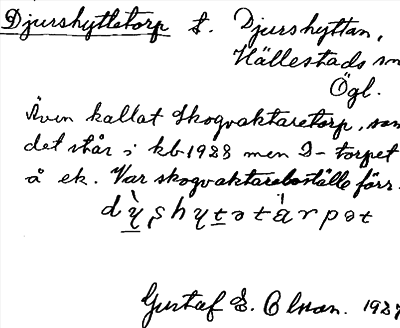 Djurshyttetorp t. Djurshyttan,
Hällestads sn
Ögl.
Även kallat Skogvaktaretorp, som
det står i kb 1928 men D-torpet
å ek. Var skogvaktareboställe förr.
dỳshytetàrpet
Gustaf E. Olsson. 192